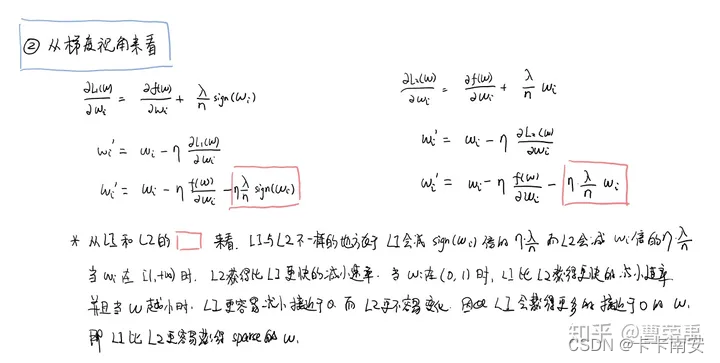 ② 从梯度视角来看
∂L₁(w)/∂wᵢ = ∂f(w)/∂wᵢ + λ/n sign(wᵢ)
wᵢ' = wᵢ - η ∂L₁(w)/∂wᵢ
wᵢ' = wᵢ - η f(w)/∂wᵢ - η λ/n sign(wᵢ)
∂L₂(w)/∂wᵢ = ∂f(w)/∂wᵢ + λ/n wᵢ
wᵢ' = wᵢ - η ∂L₂(w)/∂wᵢ
wᵢ' = wᵢ - η f(w)/∂wᵢ - η λ/n wᵢ
* 从L1和L2的 来看, L1与L2不一样的地方在于L1会减 sign(wᵢ) 倍的 η·λ/n 而L2会减 wᵢ倍的η·λ/n
当 wᵢ 在 (1,+∞) 时, L2获得比L1更快的减小速率. 当 wᵢ在 (0,1) 时, L1比L2获得更快的减小速率
并且当 w 越小时, L1更容易减小接近于0, 而L2更不容易变化. 因此 L1会获得更多的接近于0的 w.
即 L1比L2更容易获得 sparse的w.
知乎 @曹荣禹
CSDN @卡卡南安